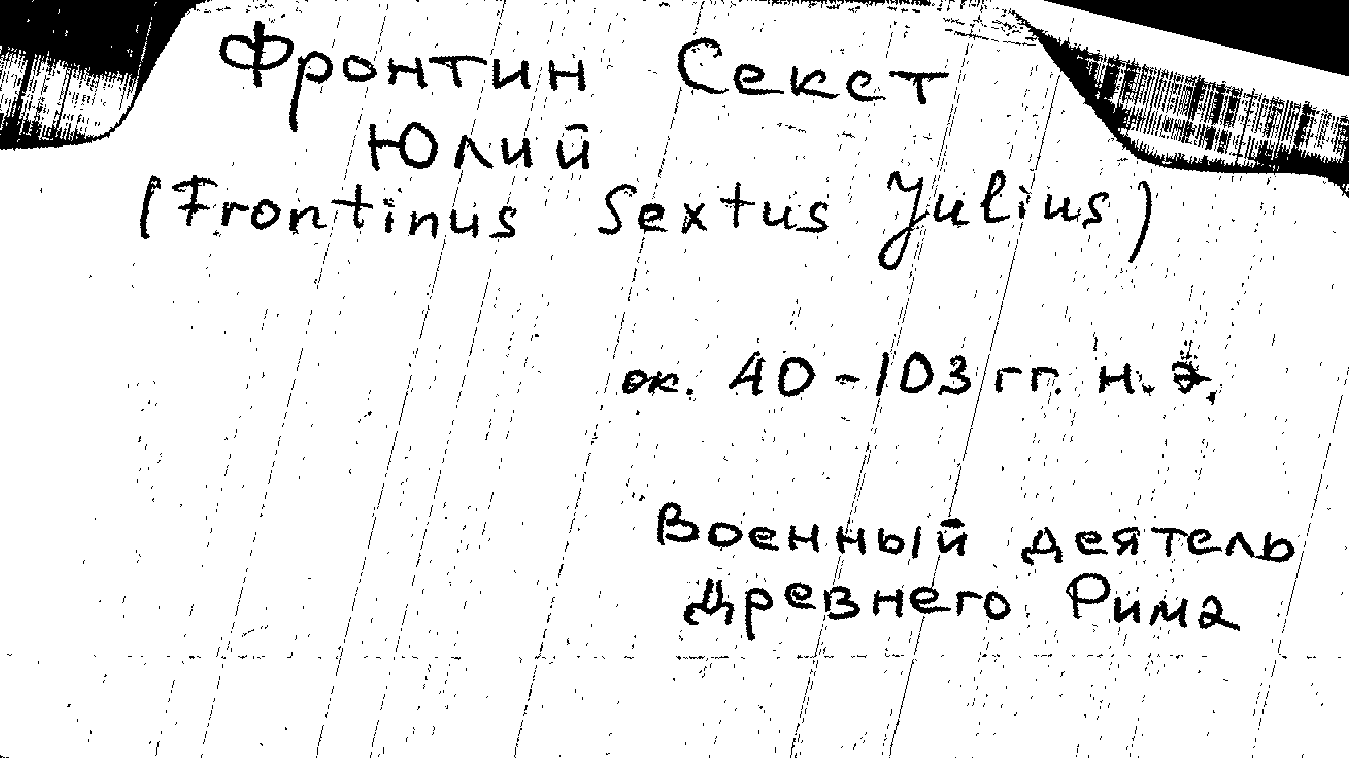 Фронтин Секст
Юлий
(Frontinus Sextus Julius)
ок. 40-103 гг. н.э.
Военный деятель
древнего Рима